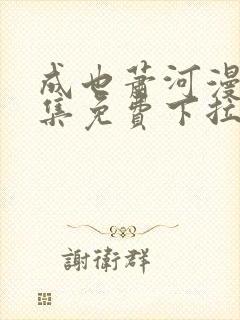 成也萧河漫
集免費下拉
謝衛群